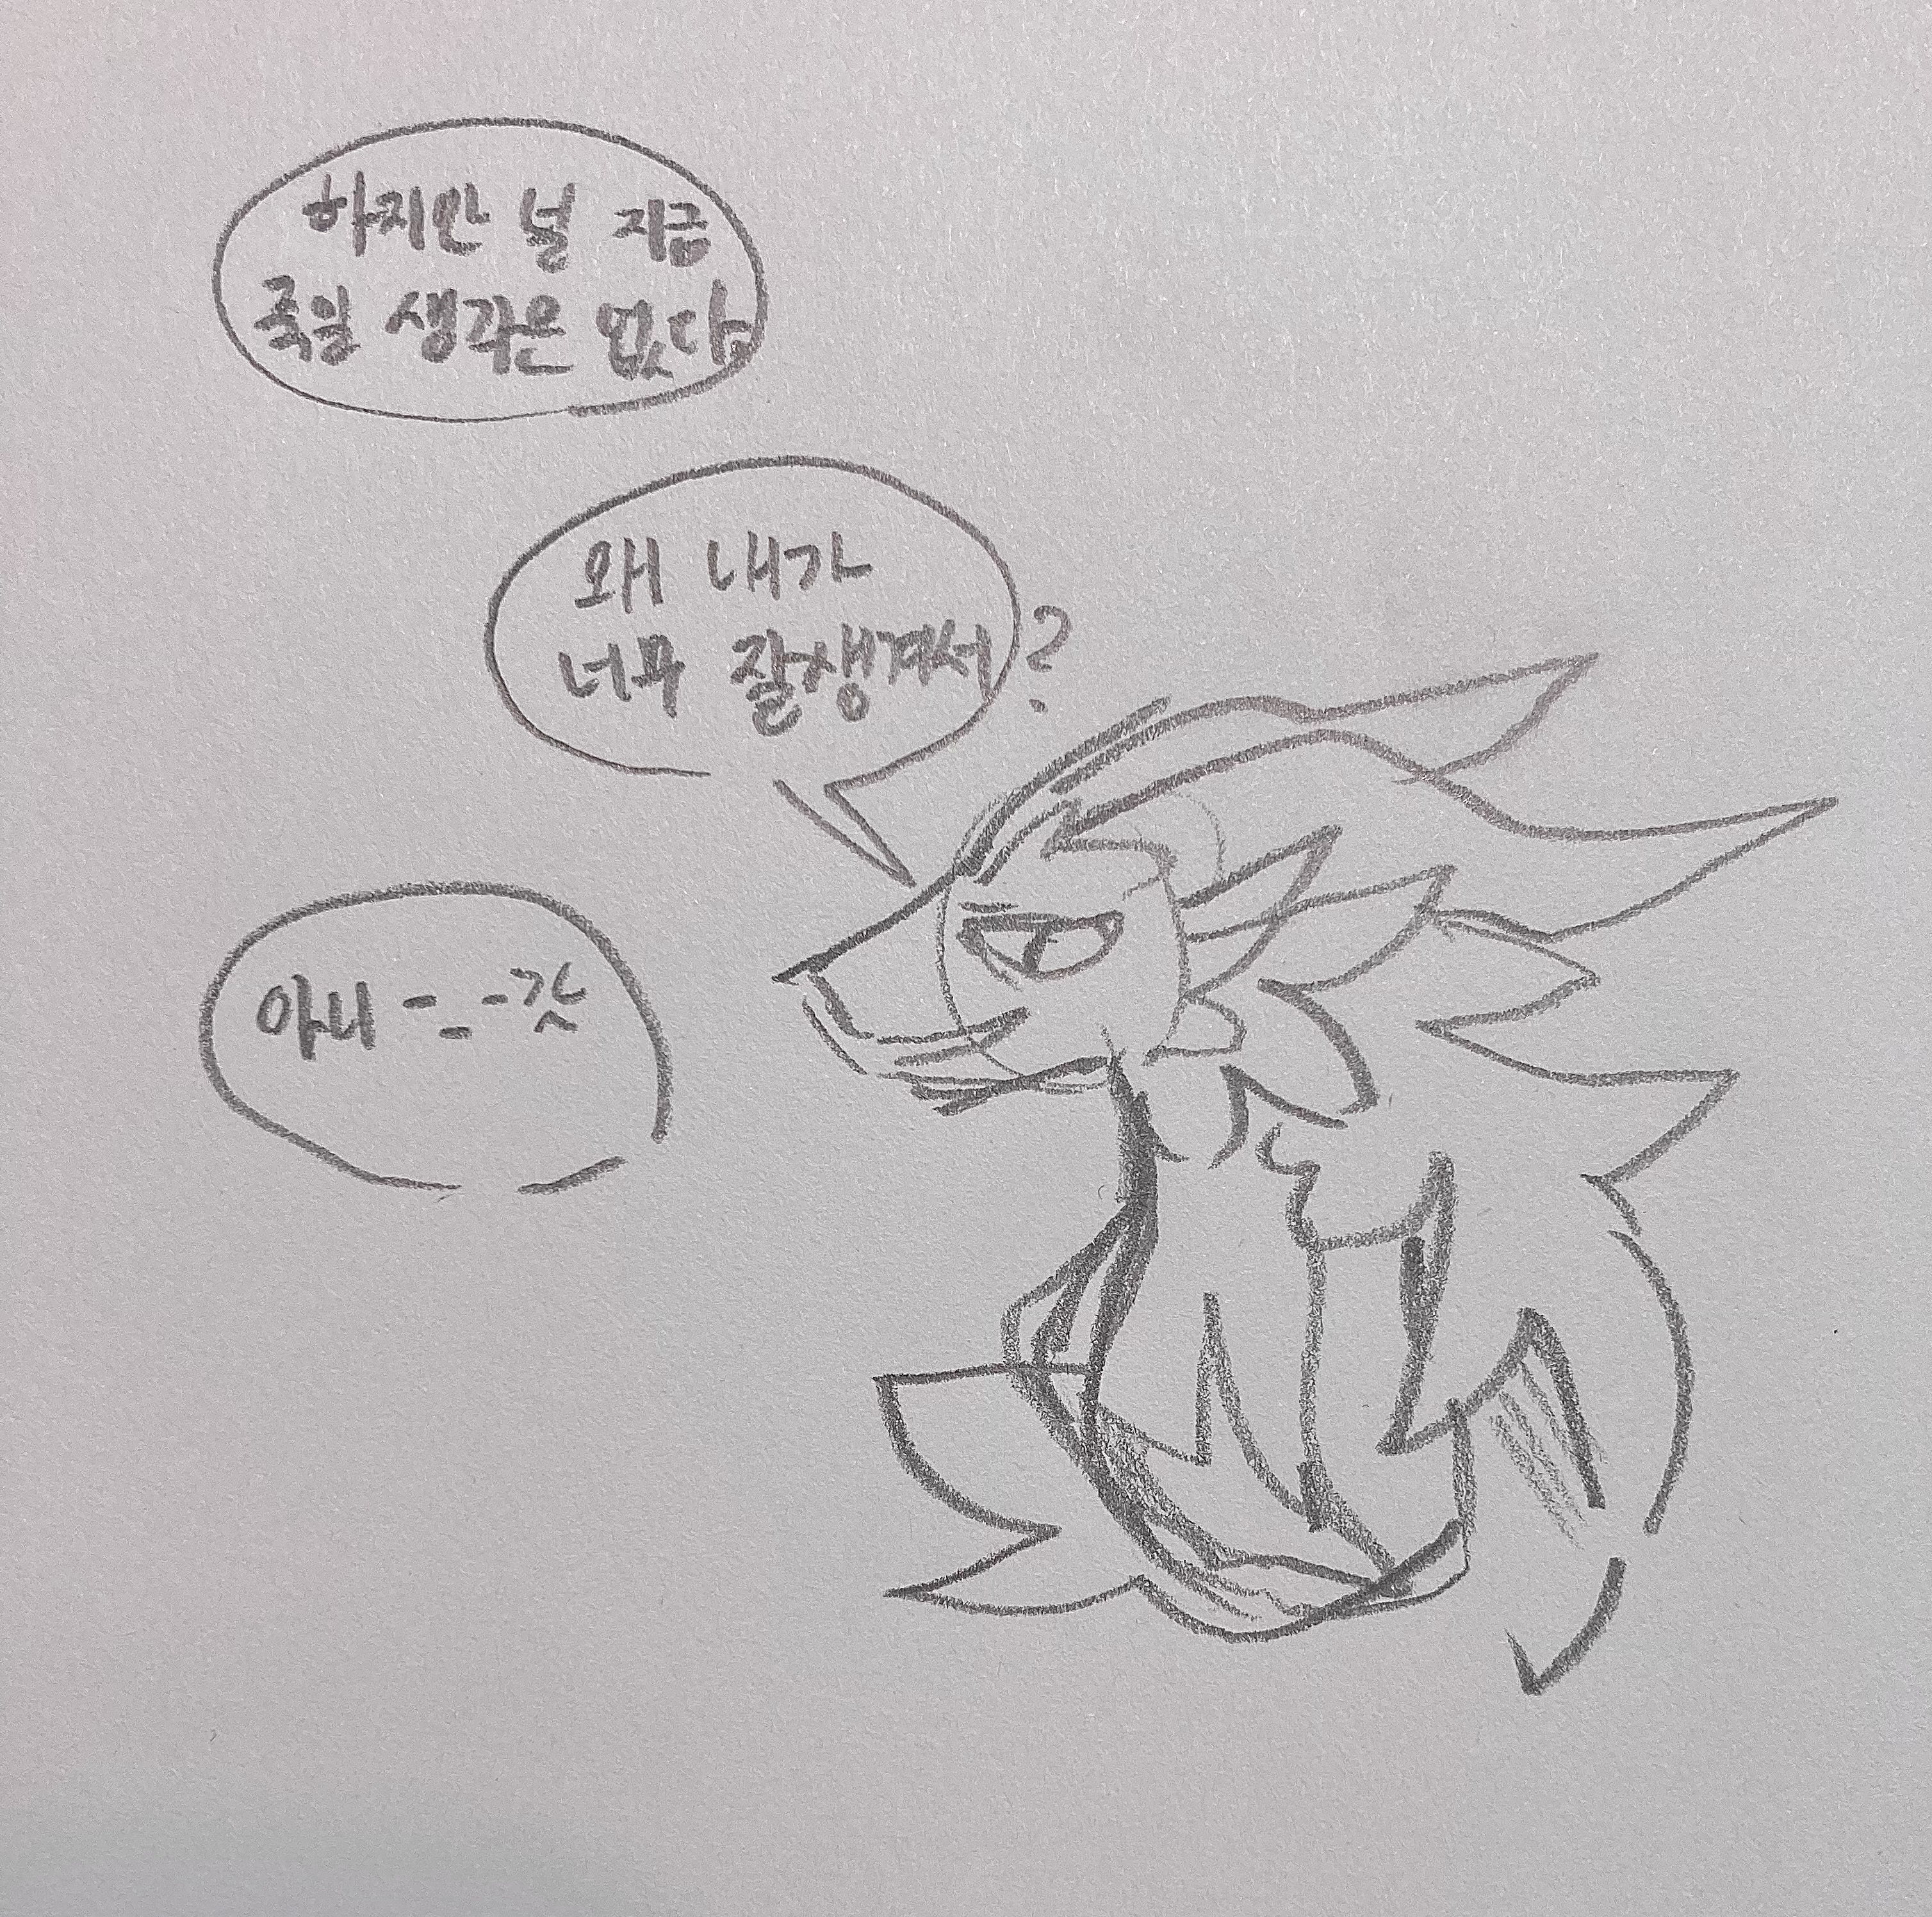 하지만 널 지금
죽일 생각은 없다
왜 내가
너무 잘생겨서?
아니 -_-